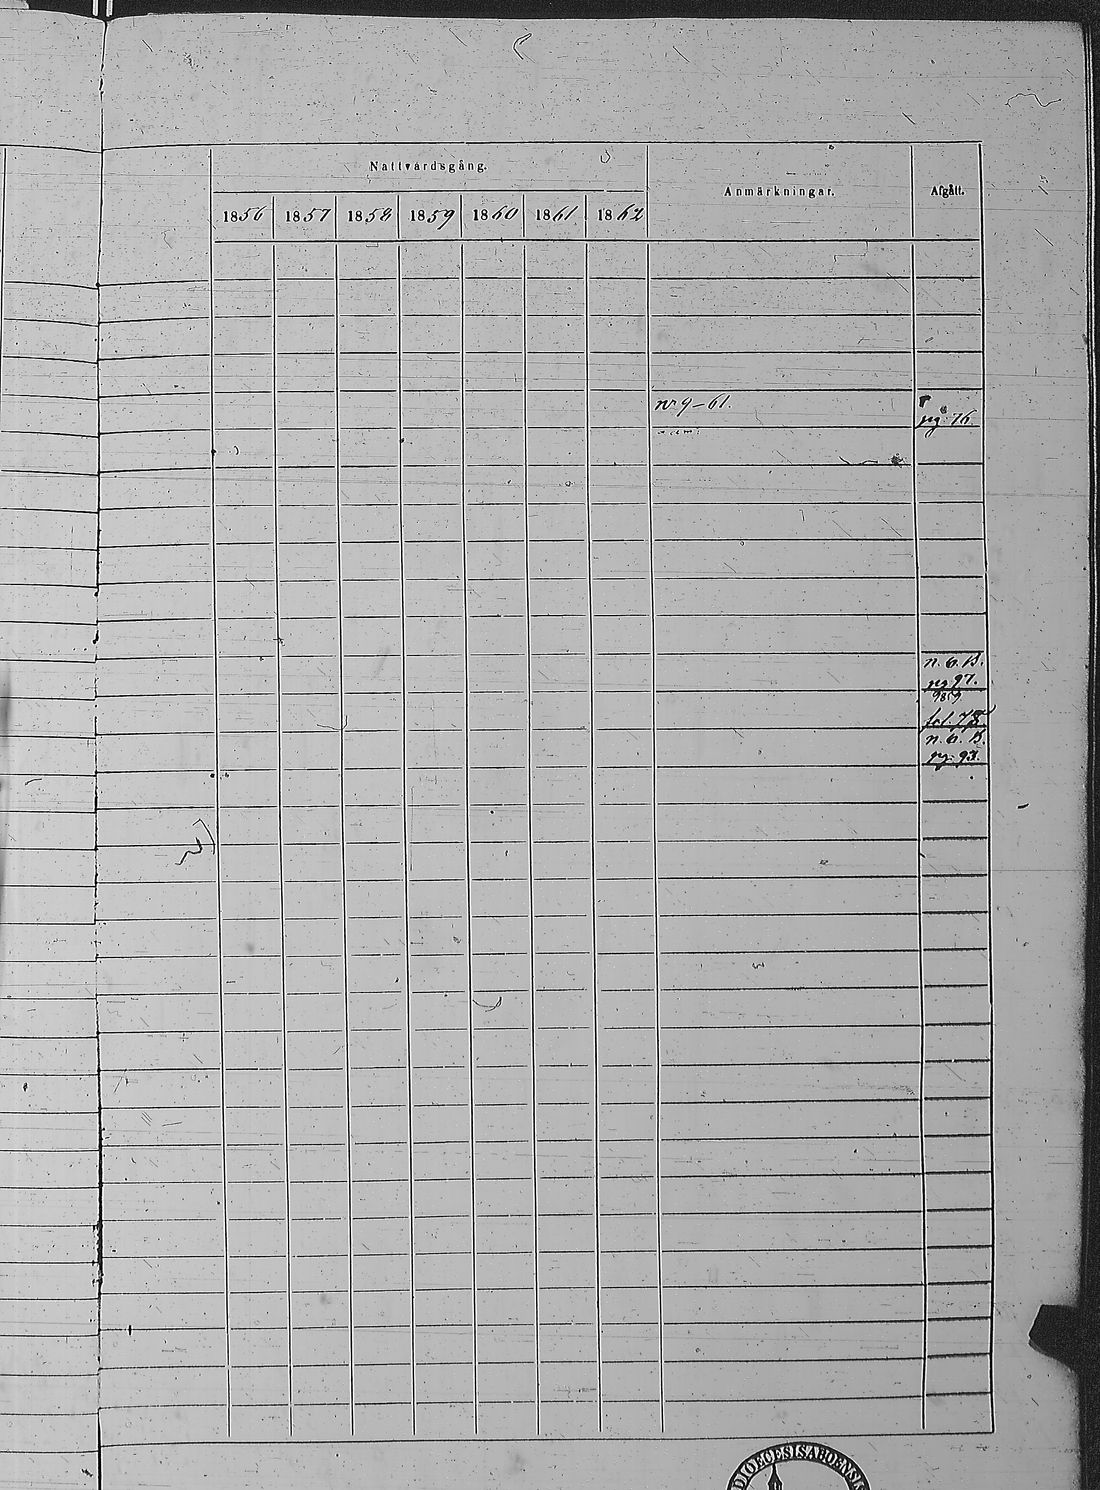 Nattvardsgång.
Anmärkningar.
Afgått.
1856 1857 1858 1859 1860 1861 1862
nr 9-61.
pg 76.
n. b. B.
pg 97.
n. b. B.
pg 93.
DIOECESIS ABOENSIS